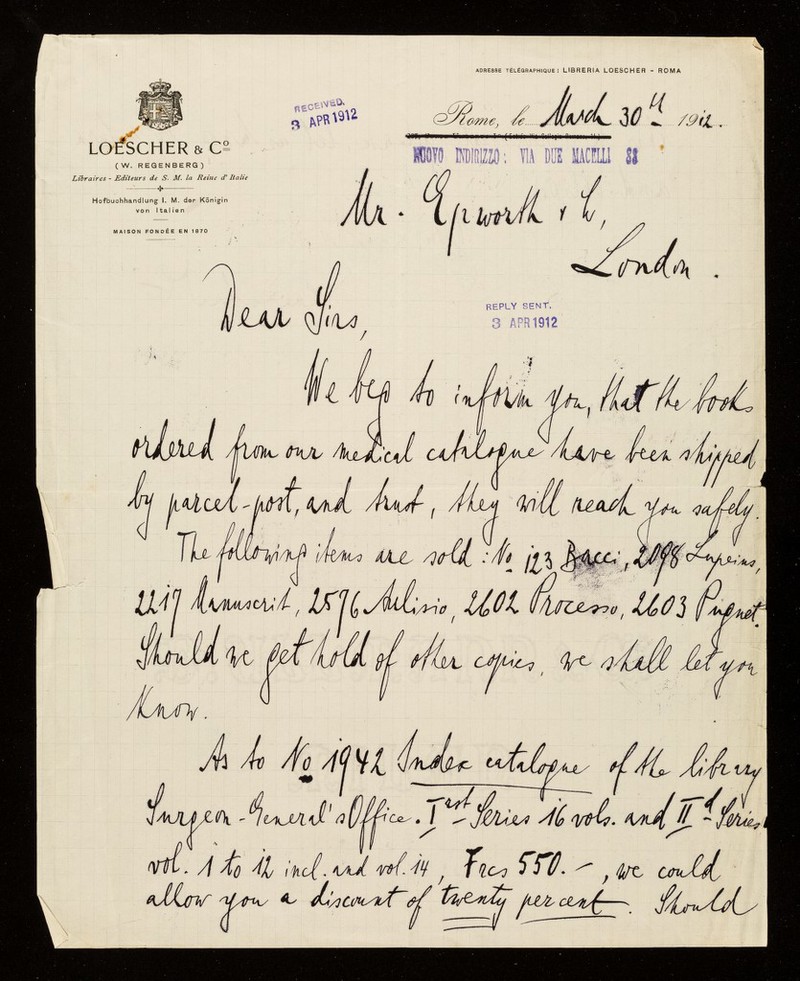 ADRESSE TÉLÉGRAPHIQUE: LIBRERIA LOESCHER - ROMA
LOESCHER & Cº
(W. REGENBERG)
Libraires - Editeurs de S. M. la Reine d'Italie
Hofbuchhandlung I. M. der Königin
von Italien
MAISON FONDÉE EN 1870
RECEIVED.
3 APR 1912
Rome, le March 30th 1912.
NUOVO INDIRIZZO: VIA DUE MACELLI 88
Mr. Epworth & Co,
London.
Dear Sirs,
REPLY SENT.
3 APR 1912
We beg to inform you, that the books
ordered from our medical catalogue have been shipped
by parcel-post, and trust, they will reach you safely.
The following items are sold: No 123 Bacci, 2098 Lupeius,
2217 Manuscrit, 2576 Aulisio, 2602 Processo, 2603 Pugnet.
Should we get hold of other copies, we shall let you
know.
As to No 1942 Index catalogue of the library
Surgeon-General's Office. Irst Series 16 vols. and IId Series
vol. 1 to 12 incl. and vol. 14, Frcs 550.-, we could
allow you a discount of twenty percent. Should